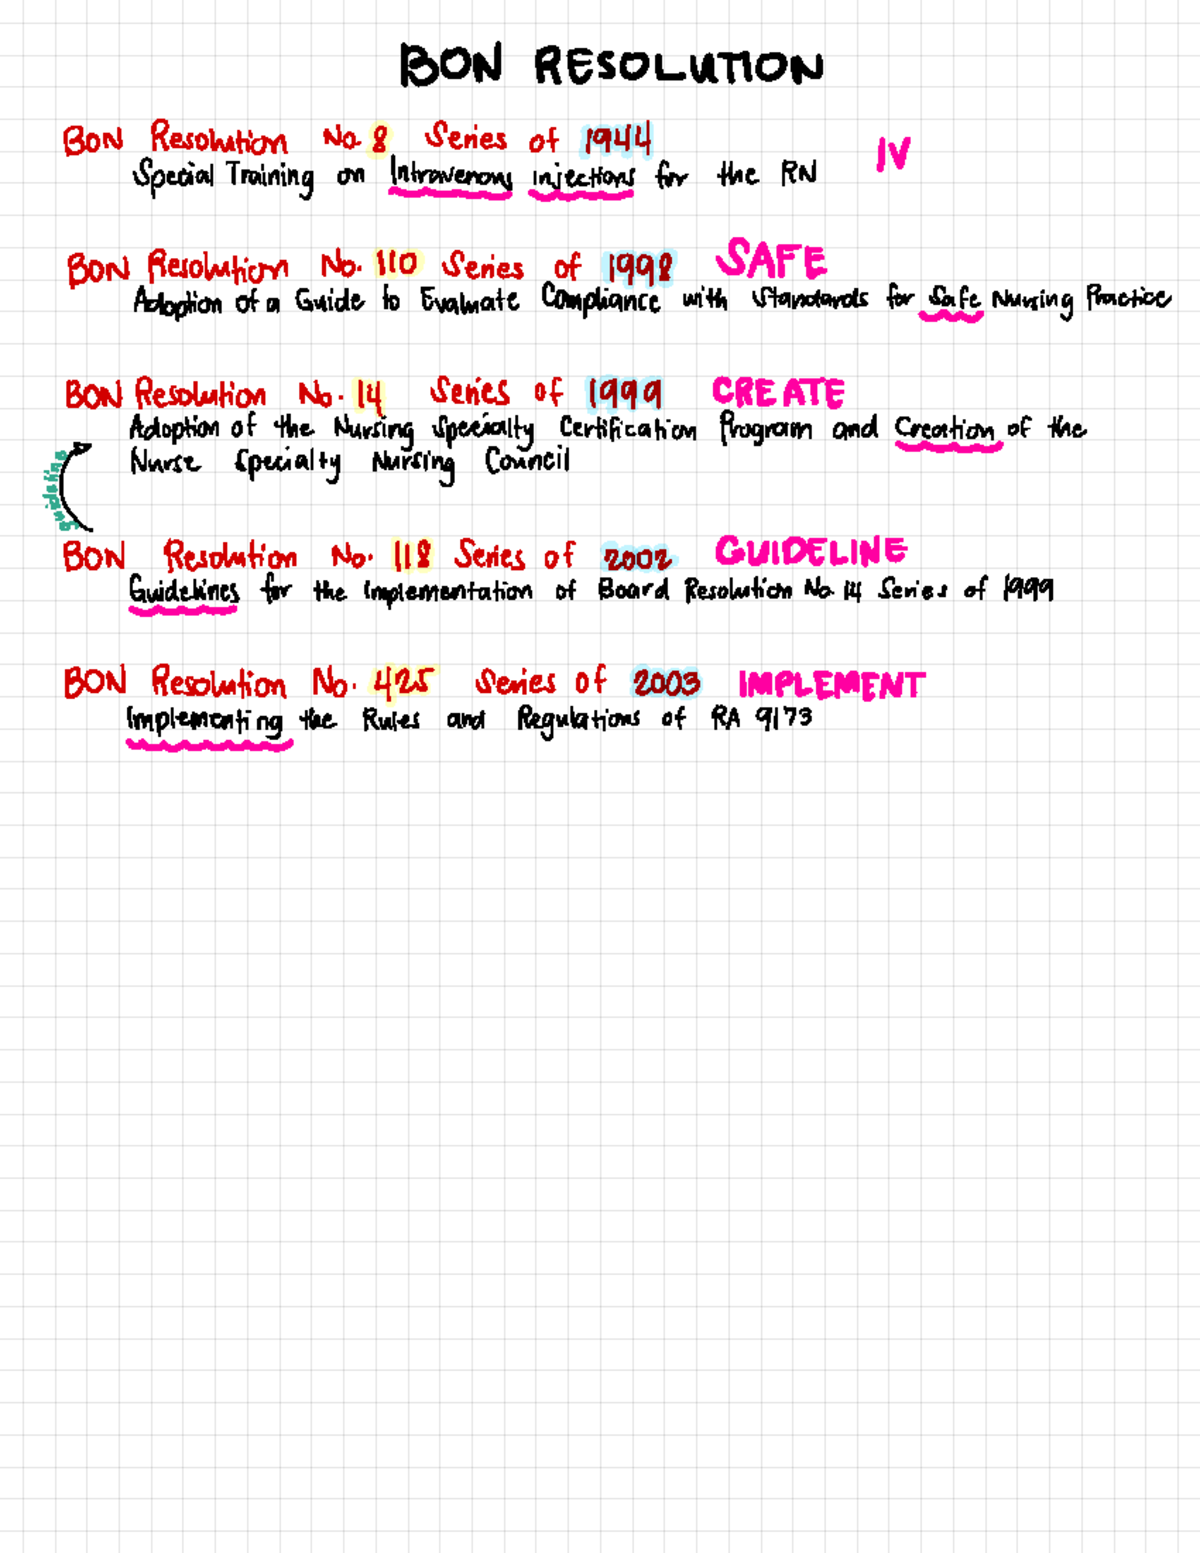 BON RESOLUTION
BON Resolution No. 8 Series of 1944 IV
Special Training on Intravenous injections for the RN
BON Resolution No. 110 Series of 1998 SAFE
Adoption of a Guide to Evaluate Compliance with Standards for Safe Nursing Practice
BON Resolution No. 14 Series of 1999 CREATE
Adoption of the Nursing Specialty Certification Program and Creation of the
Nurse Specialty Nursing Council
guideline
BON Resolution No. 118 Series of 2002 GUIDELINE
Guidelines for the Implementation of Board Resolution No. 14 Series of 1999
BON Resolution No. 425 Series of 2003 IMPLEMENT
Implementing the Rules and Regulations of RA 9173